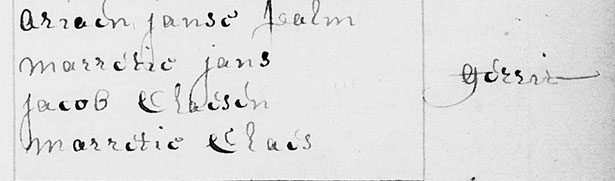 arriaen janse Joalm
marretie jans
jacob Claesen
marretie Claes
gerrit